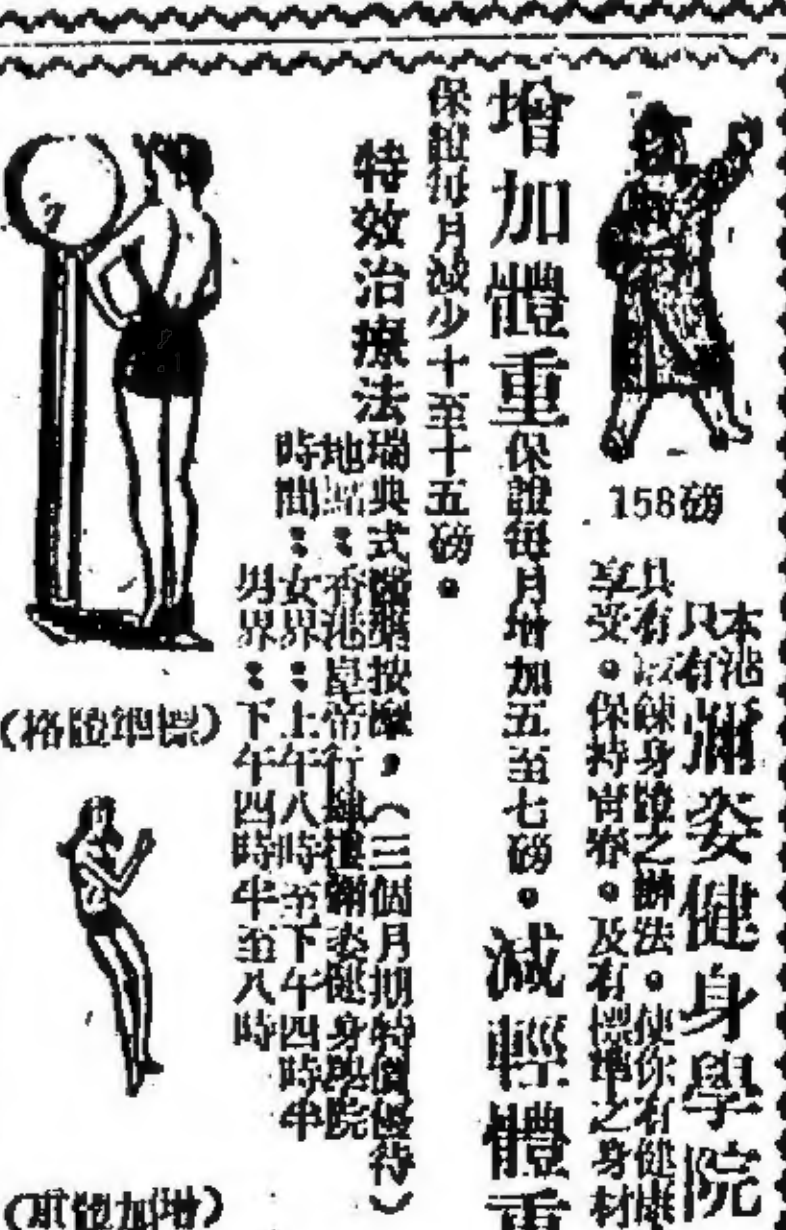 本港
只有
姿健身學院
具有鍊身體之辦法。使你有健康
享受。保持青春。及有標準之身材
158磅
增加體重
保證每月增加五至七磅。
減輕體重
保證每月減少十至十五磅。
特效治療法
瑞典式按摩,(三個月期特價優待)
地點:香港皇帝行姿健身學院
時間:女界:上午八時至下午四時半
男界:下午四時半至八時
(標準體格)
(增加體重)